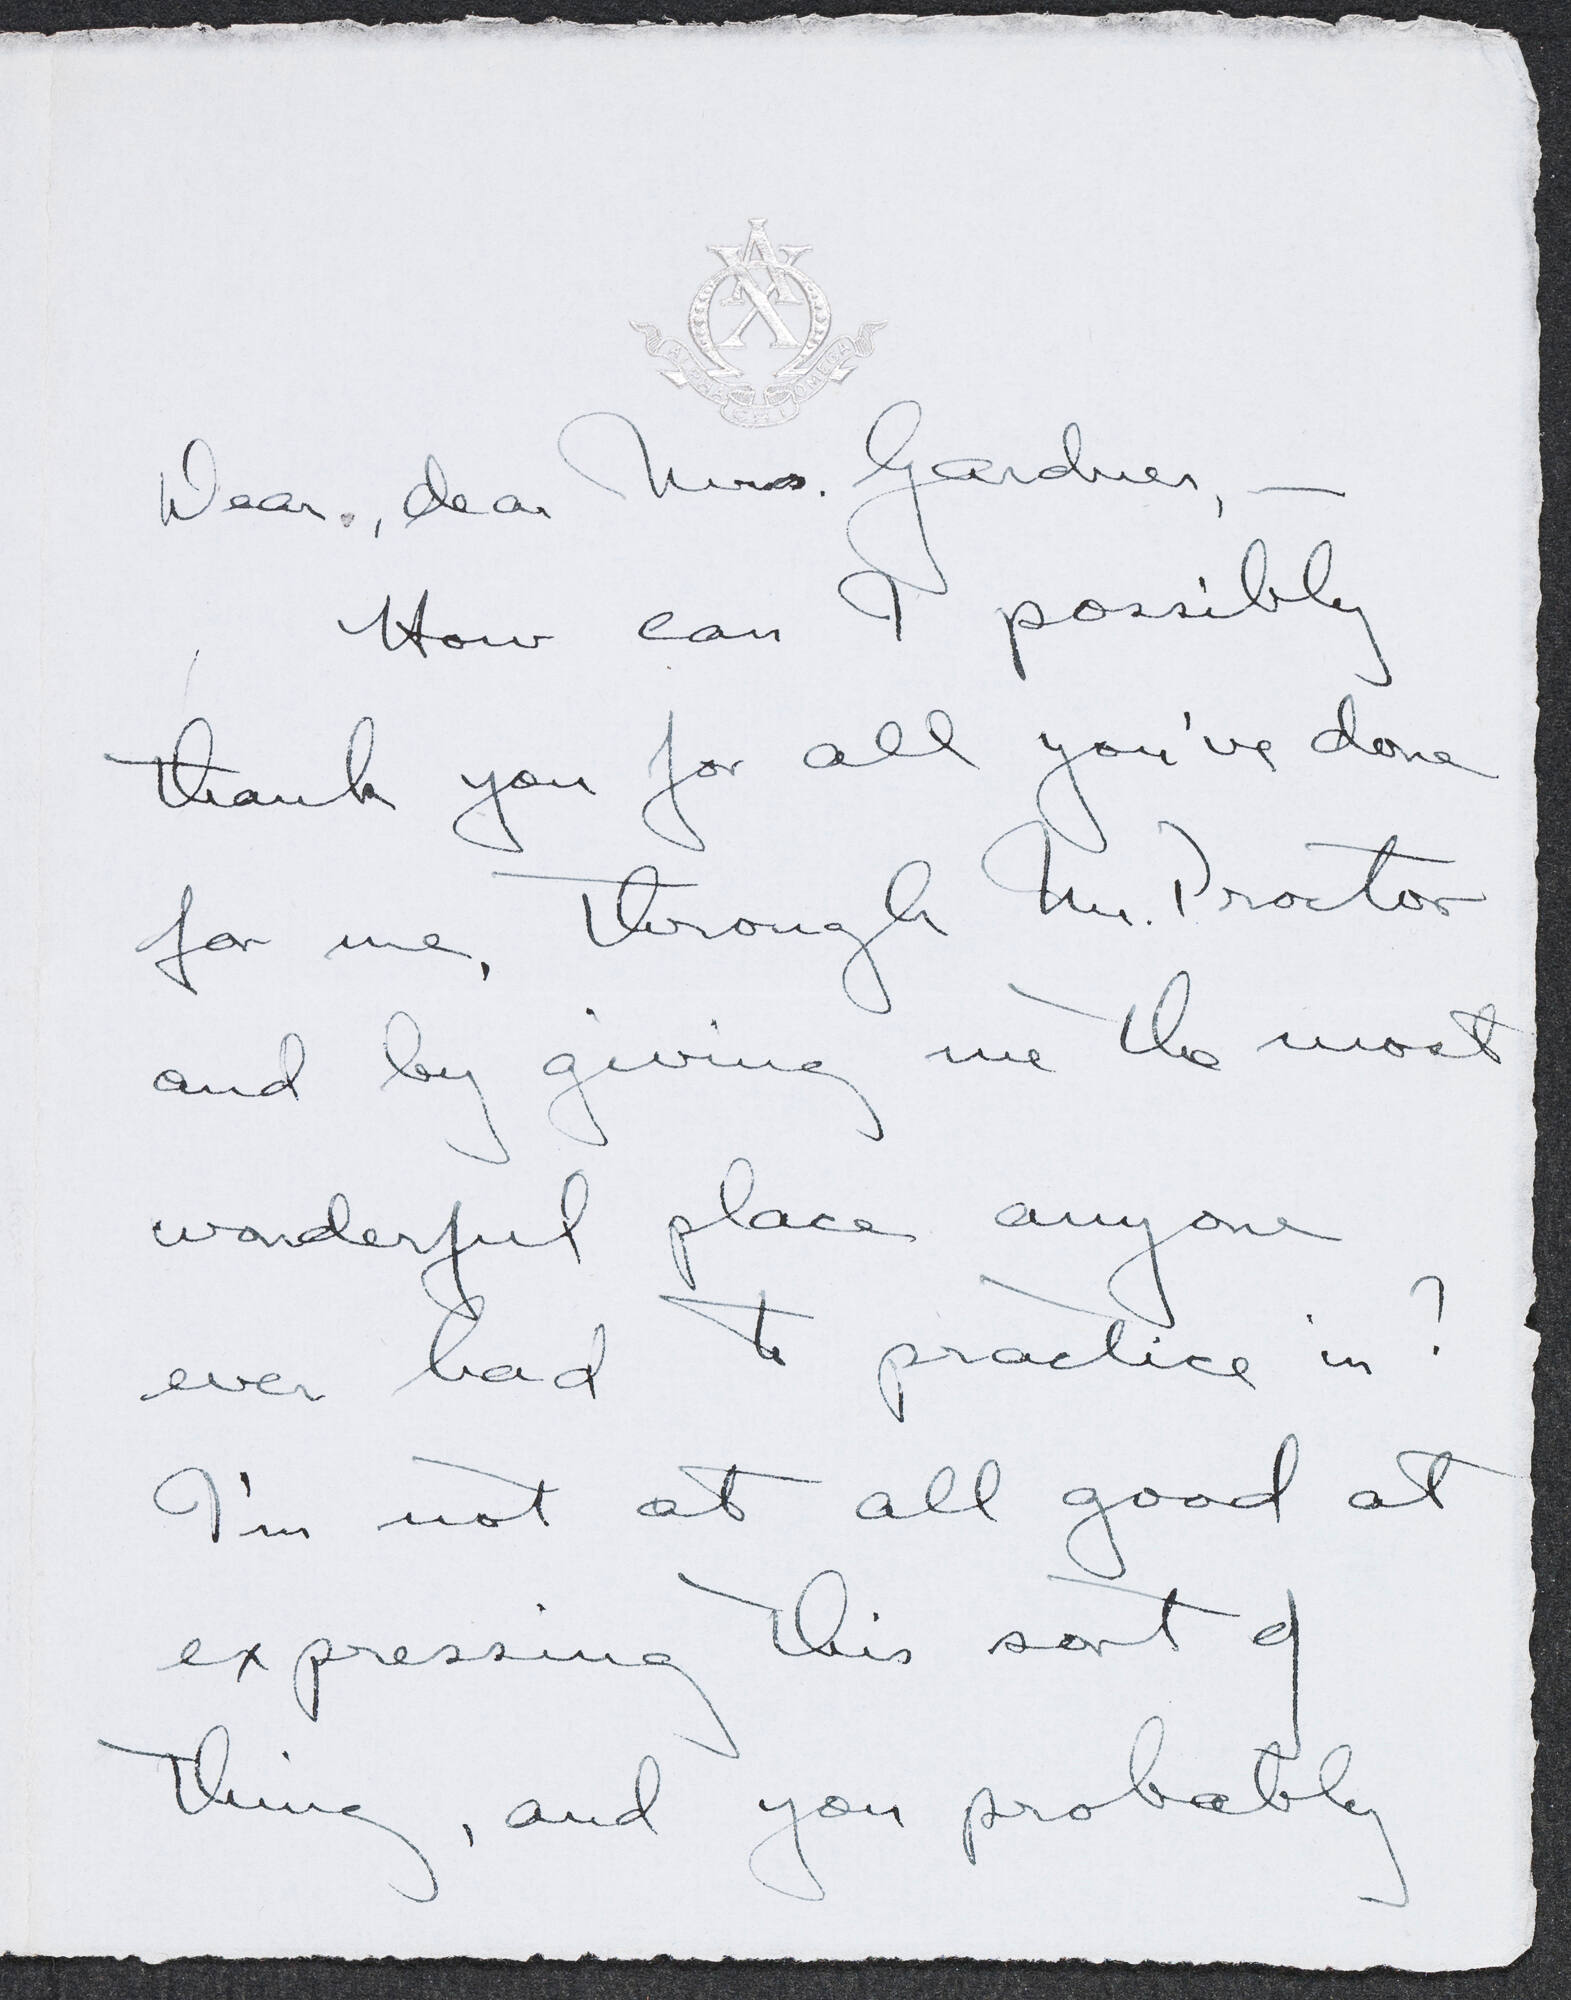 ΑΧΩ
ALPHA CHI OMEGA
Dear, dear Mrs. Gardner, —
How can I possibly
thank you for all you've done
for me, through Mr. Proctor
and by giving me the most
wonderful place anyone
ever had to practice in?
I'm not at all good at
expressing this sort of
thing, and you probably